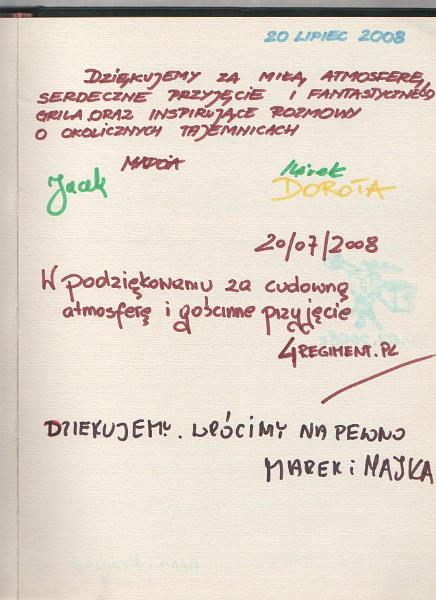 20 LIPIEC 2008
DZIĘKUJEMY ZA MIŁĄ ATMOSFERĘ,
SERDECZNE PRZYJĘCIE I FANTASTYCZNEGO
GRILA ORAZ INSPIRUJĄCE ROZMOWY
O OKOLICZNYCH TAJEMNICACH
Jacek Mirek
DOROTA
20/07/2008
W podziękowaniu za cudowną
atmosferę i gościnne przyjęcie
4REGIMENT.PL
DZIEKUJEMY. WRÓCIMY NA PEWNO
MAREK i MAJKA